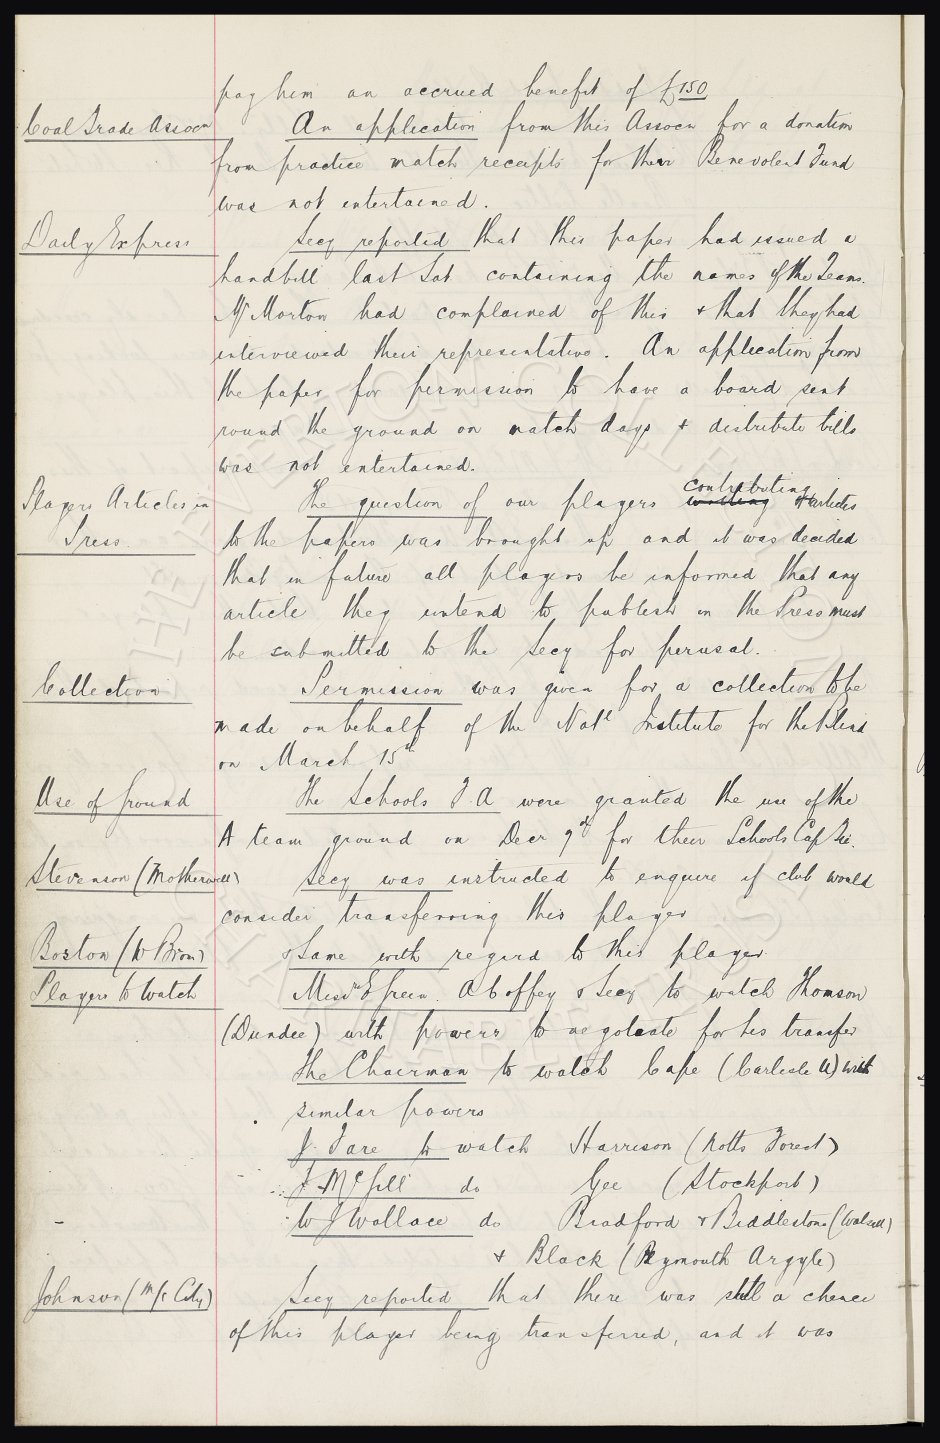 pay him an accrued benefit of £150
Coal Trade Assocn
An application from this Assocn for a donation
from practice match receipts for their Benevolent Fund
was not entertained.
Daily Express
Secy reported that this paper had issued a
handbill last Sat containing the names of the Teams.
Mr Morton had complained of this & that they had
interviewed their representative. An application from
the paper for permission to have a board sent
round the ground on match days & distribute bills
was not entertained.
Players Articles in
Press.
The question of our players writing contributing articles
to the papers was brought up and it was decided
that in future all players be informed that any
article they intend to publish in the Press must
be submitted to the Secy for perusal.
Collection
Permission was given for a collection to be
made on behalf of the Natl Institute for the Blind
on March 15th
Use of Ground
The Schools F.A were granted the use of the
A team ground on Decr 9th for their Schools Cup Tie.
Stevenson (Motherwell)
Secy was instructed to enquire if club would
consider transferring this player
Boston (W Brom)
Same with regard to this player
Players to Watch
Messrs E Green. A Coffey & Secy to watch Thomson
(Dundee) with powers to negotiate for his transfer
The Chairman to watch Cape (Carlisle U) with
similar powers
J. Fare to watch Harrison (Notts Forest)
J McGill do Gee (Stockport)
W J Wallace do Bradford & Biddlestone (Walsall)
& Black (Plymouth Argyle)
Johnson (M/c City)
Secy reported that there was still a chance
of this player being transferred, and it was